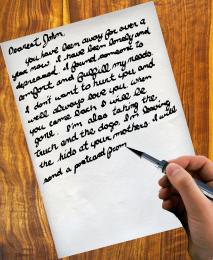 Dearest John,
You have been away for over a
year now. I have been lonely and
depressed. I found someone to
comfort and fulfill my needs.
I don't want to hurt you and
will always love you when
you come back I will be
gone. I'm also taking the
truck and the dogs. I'm leaving
the kids at your mothers. I will
send a postcard from